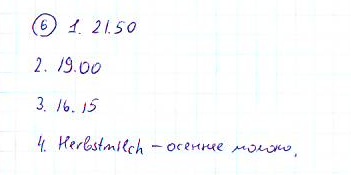 6 1. 21.50
2. 19.00
3. 16.15
4. Herbstmilch – осеннее молоко.